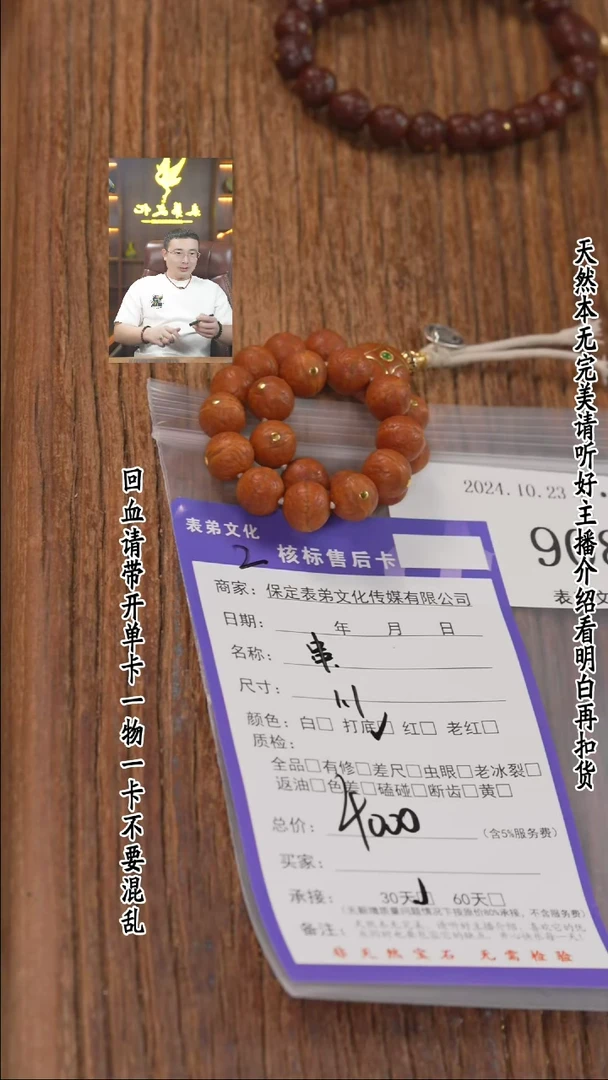 天然本无完美请听好主播介绍看明白再扣货
回血请带开单卡一物一卡不要混乱
2024.10.23
908
表弟文
表弟文化
2 核标售后卡
商家：保定表弟文化传媒有限公司
日期： 年 月 日
名称： 串
尺寸：
颜色：白□ 打底□ 红□ 老红□
质检：
全品□有修□差尺□虫眼□老冰裂□
返油□色差□磕碰□断齿□黄□
总价： 4000 （含5%服务费）
买家：
承接： 30天□ 60天□
备注：
非天然宝石 无需检验